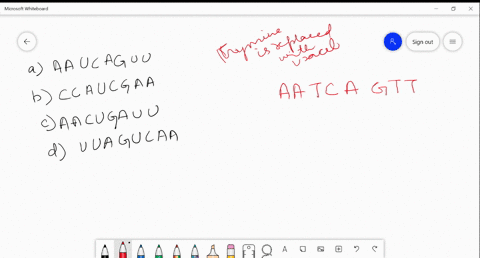 Microsoft Whiteboard
Sign out
a) AAUCAGUU
b) CCAUCGAA
c) AACUGAUU
d) UUAGUCAA
is replaced
with
AATCA GTT